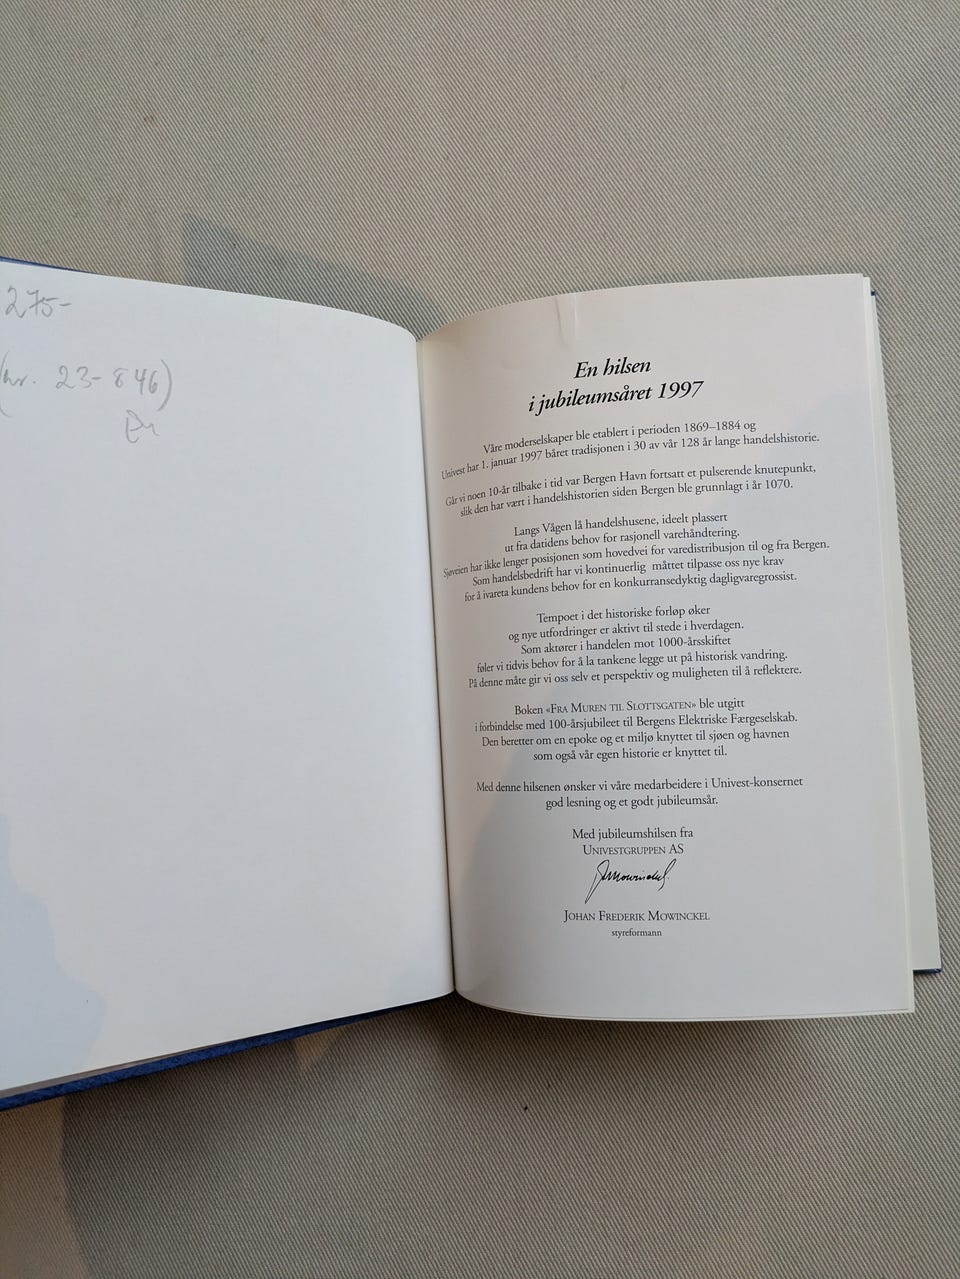 275-
(nr. 23-846)
En hilsen
i jubileumsåret 1997
Våre moderselskaper ble etablert i perioden 1869–1884 og
Univest har 1. januar 1997 båret tradisjonen i 30 av vår 128 år lange handelshistorie.
Går vi noen 10-år tilbake i tid var Bergen Havn fortsatt et pulserende knutepunkt,
slik den har vært i handelshistorien siden Bergen ble grunnlagt i år 1070.
Langs Vågen lå handelshusene, ideelt plassert
ut fra datidens behov for rasjonell varehåndtering.
Sjøveien har ikke lenger posisjonen som hovedvei for varedistribusjon til og fra Bergen.
Som handelsbedrift har vi kontinuerlig måttet tilpasse oss nye krav
for å ivareta kundens behov for en konkurransedyktig dagligvaregrossist.
Tempoet i det historiske forløp øker
og nye utfordringer er aktivt til stede i hverdagen.
Som aktører i handelen mot 1000-årsskiftet
føler vi tidvis behov for å la tankene legge ut på historisk vandring.
På denne måte gir vi oss selv et perspektiv og muligheten til å reflektere.
Boken «FRA MUREN TIL SLOTTSGATEN» ble utgitt
i forbindelse med 100-årsjubileet til Bergens Elektriske Færgeselskab.
Den beretter om en epoke og et miljø knyttet til sjøen og havnen
som også vår egen historie er knyttet til.
Med denne hilsenen ønsker vi våre medarbeidere i Univest-konsernet
god lesning og et godt jubileumsår.
Med jubileumshilsen fra
UNIVESTGRUPPEN AS
JOHAN FREDERIK MOWINCKEL
styreformann